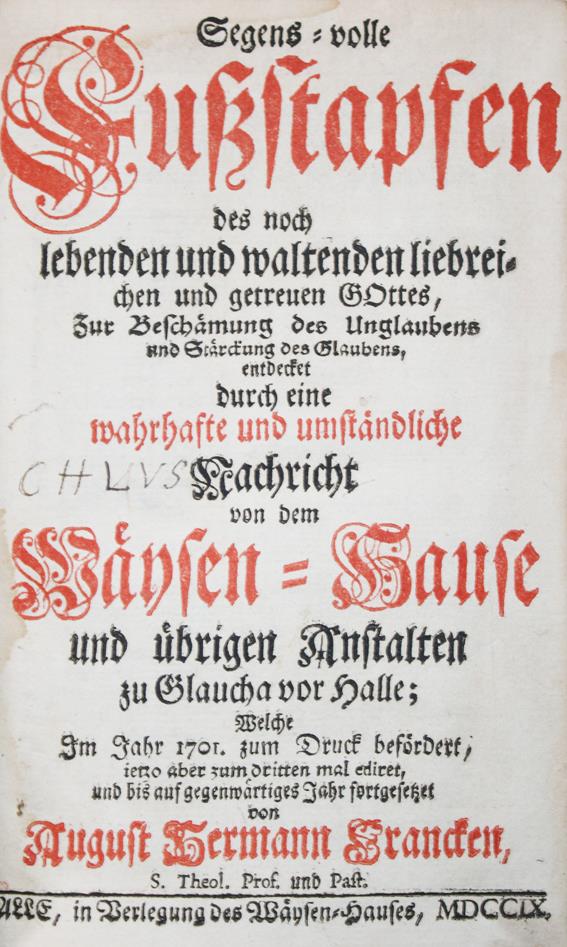 Segens-volle
Fußstapfen
des noch
lebenden und waltenden liebrei-
chen und getreuen GOttes,
Zur Beschämung des Unglaubens
und Stärckung des Glaubens,
entdecket
durch eine
wahrhafte und umständliche
CHLVS Nachricht
von dem
Wäysen-Hause
und übrigen Anstalten
zu Glaucha vor Halle;
Welche
Im Jahr 1701. zum Druck befördert,
ietzo aber zum dritten mal ediret,
und bis auf gegenwärtiges Jahr fortgesetzet
von
August Hermann Francken,
S. Theol. Prof. und Past.
ALLE, in Verlegung des Wäysen-Hauses, MDCCIX.